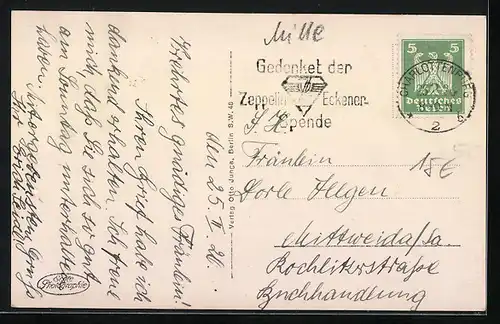 Mille
Gedenket der
Zeppelin Eckener-
Spende
CHARLOTTENBURG
2
5 5
Deutsches
Reich
den 25. II. 26.
Wertes gnädiges Fräulein!
Ihren Brief habe ich
dankend erhalten. Ich freue
mich, daß Sie sich so gut
am Sonntag unterhalten
haben.
Gruß
Ihr Erich
Fräulein
Dorle Illgen
Mittweida/Sa.
Rochlitzerstraße
Buchhandlung
15€
Verlag Otto Junga, Berlin S.W. 48
Echte
Photographie